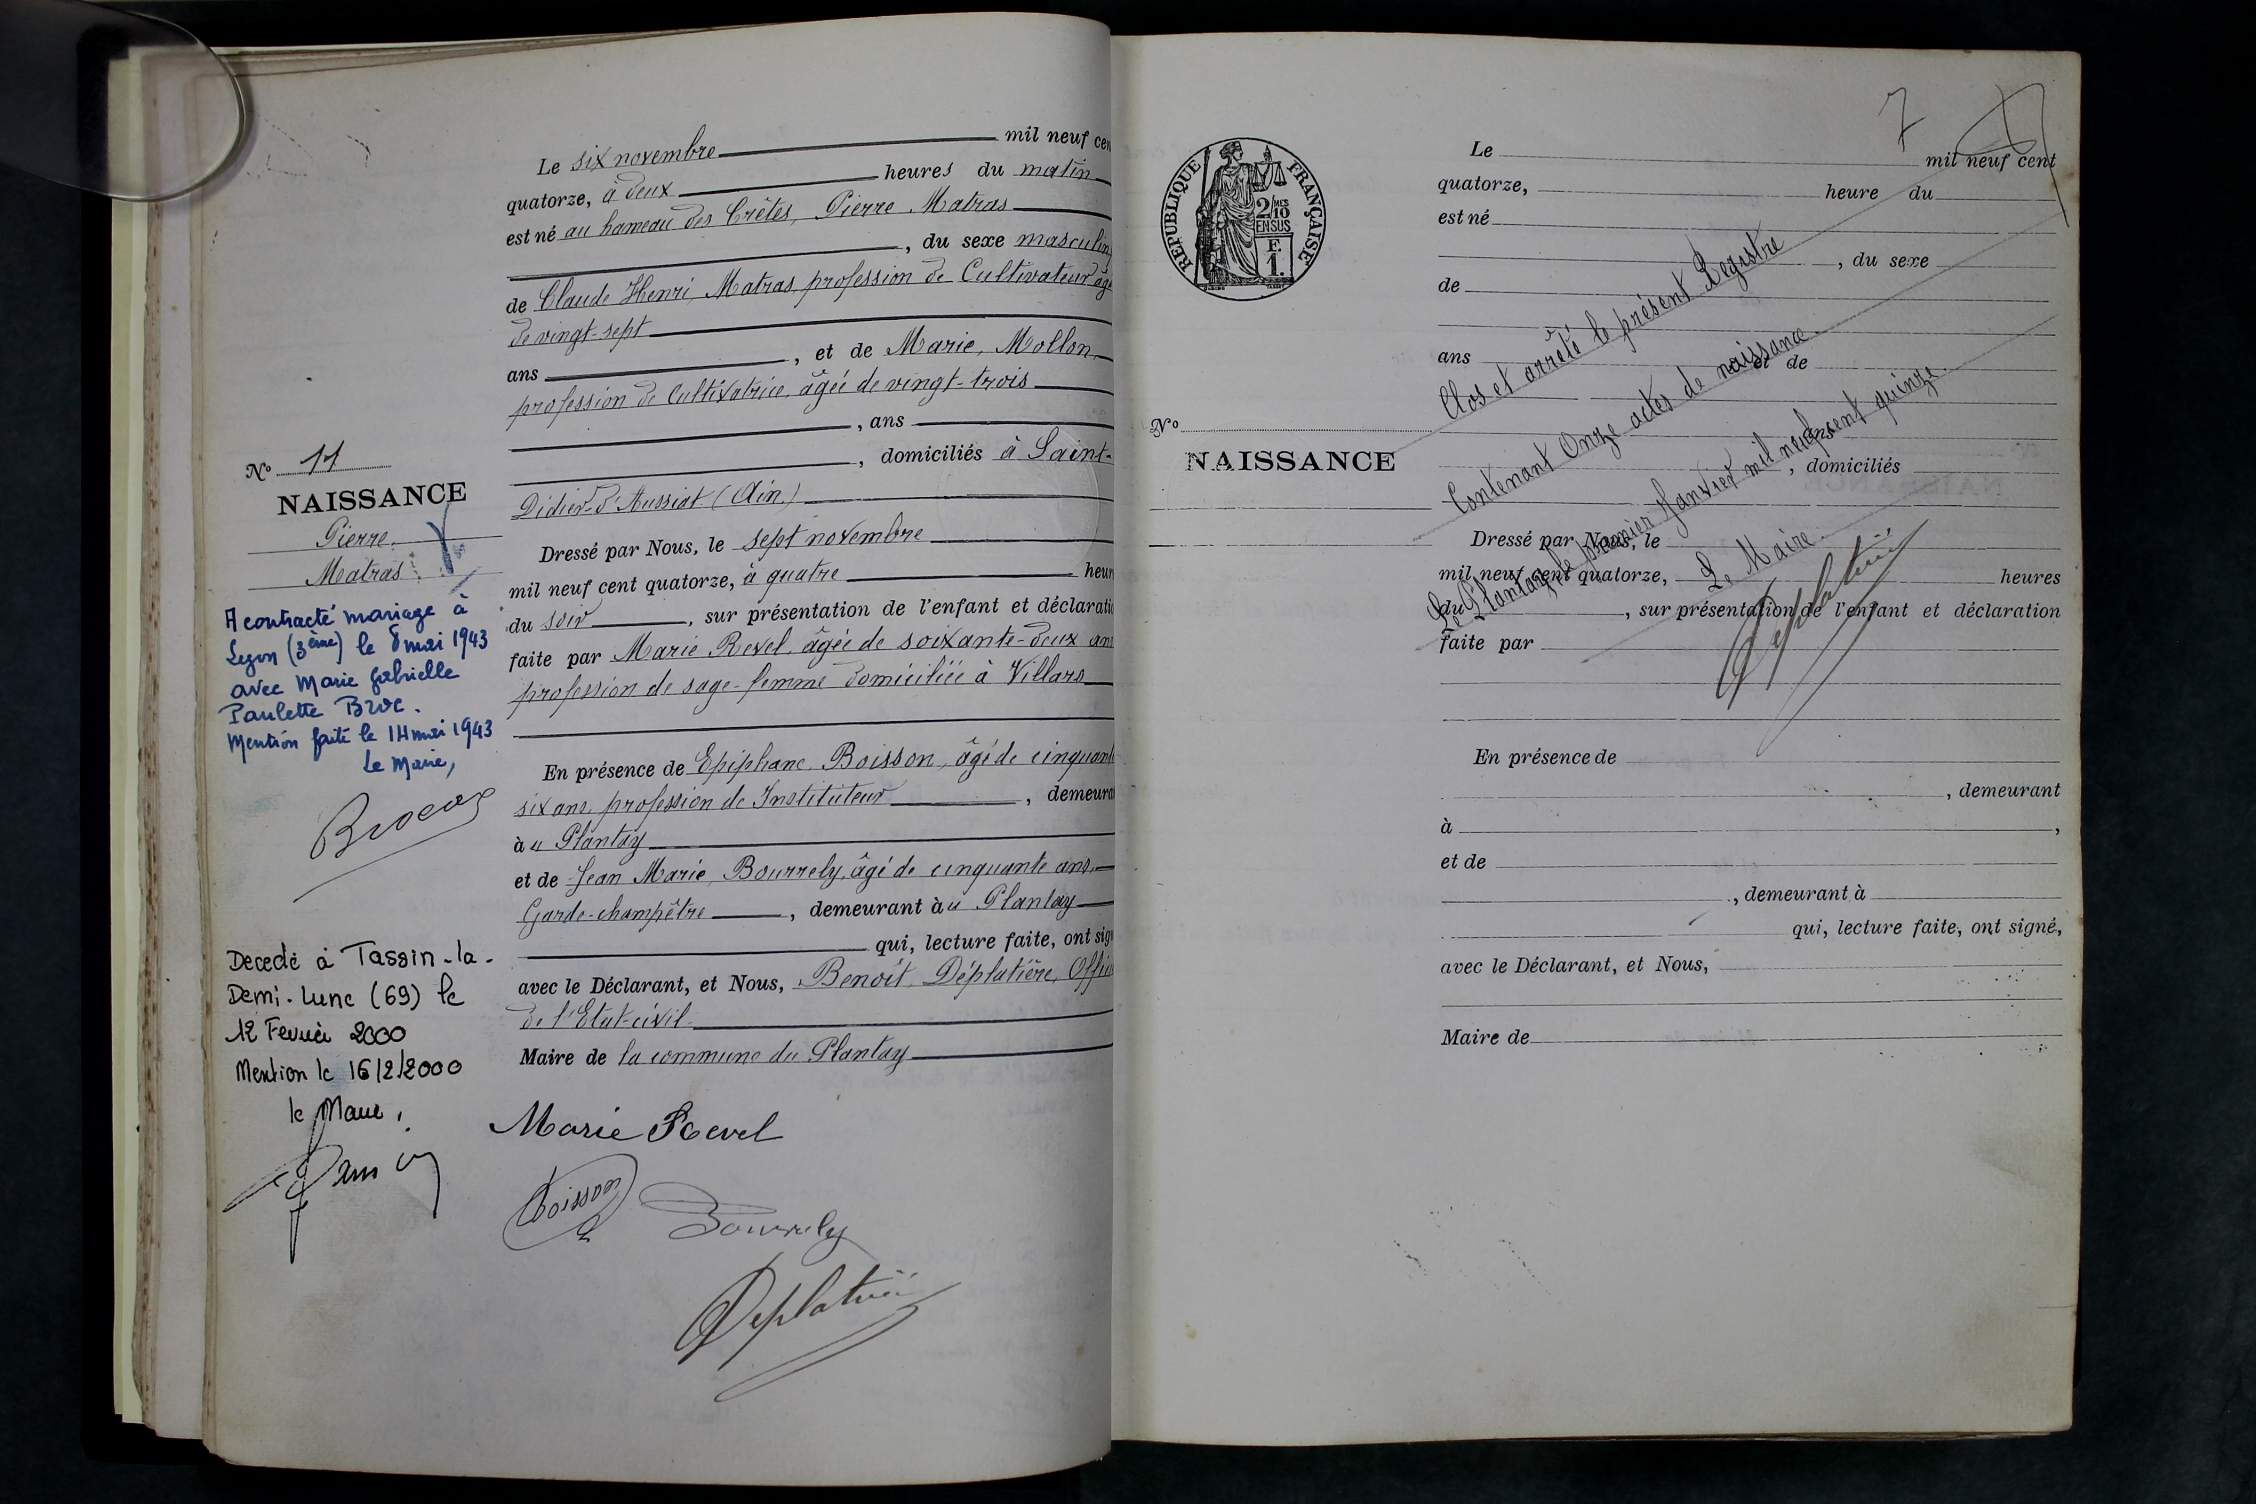 Le six novembre mil neuf cen
quatorze, à deux heures du matin
est né au hameau des Crêtes, Pierre Matras
, du sexe masculin
de Claude Henri Matras, profession de Cultivateur âgé
de vingt-sept
ans , et de Marie Mollon,
profession de Cultivatrice, âgée de vingt-trois
, ans
, domiciliés à Saint-
Didier-d'Aussiat (Ain)
Dressé par Nous, le sept novembre
mil neuf cent quatorze, à quatre heur
du soir , sur présentation de l'enfant et déclaratio
faite par Marie Revel, âgée de soixante-deux ans
profession de sage-femme domiciliée à Villars
En présence de Epiphane Boisson, âgé de cinquante
six ans, profession de Instituteur , demeura
à u Plantay
et de Jean Marie Bourrely, âgé de cinquante ans,
Garde-champêtre , demeurant à u Plantay
qui, lecture faite, ont sign
avec le Déclarant, et Nous, Benoît Déplatière, Offici
de l'Etat-civil
Maire de la commune du Plantay
Marie Revel
Boisson
Bourrely
Déplatière
No 11
NAISSANCE
Pierre
Matras
A contracté mariage à
Lyon (3ème) le 8 mai 1943
avec Marie Gabrielle
Paulette Broc.
Mention faite le 14 mai 1943
Le Maire,
Décédé à Tassin-la-
Demi-Lune (69) le
12 Février 2000
Mention le 16/2/2000
le Maire,
7
RÉPUBLIQUE FRANÇAISE
2/10 MES
EN SUS
F.
1.
No
NAISSANCE
Le mil neuf cent
quatorze, heure du
est né
, du sexe
de
ans et de
ans
, domiciliés
Dressé par Nous, le
mil neuf cent quatorze, heures
du , sur présentation de l'enfant et déclaration
faite par
En présence de
, demeurant
à ,
et de
, demeurant à
qui, lecture faite, ont signé,
avec le Déclarant, et Nous,
Maire de
Clos et arrêté le présent Registre
Contenant Onze actes de naissance
Le Plantay le premier Janvier mil neuf cent quinze.
Le Maire
Déplatière